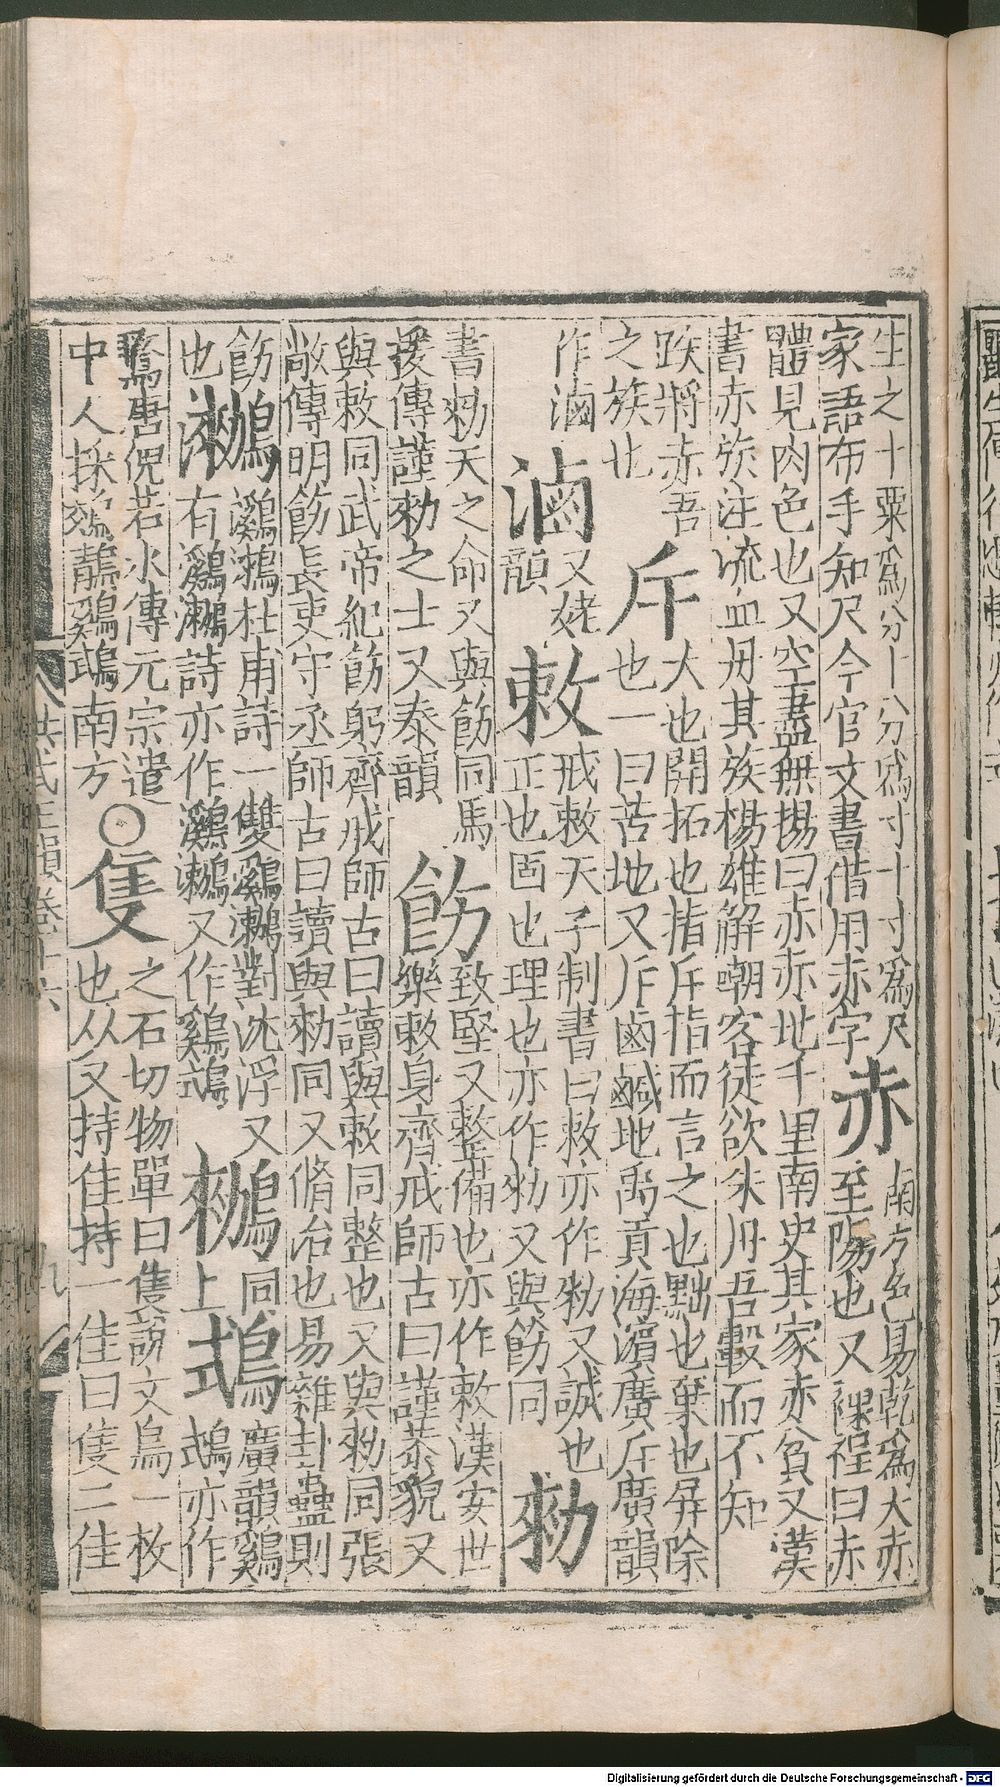 生之十粟爲分十分爲寸十寸爲尺
家語布手知尺今官文書借用赤字
赤
南方色易乾爲大赤
至陽也又裸裎曰赤
體見肉色也又空盡無揚曰赤赤地千里南史其家赤貧又漢
書赤族注流血丹其族楊雄解嘲客徒欲朱丹吾轂而不知
跌將赤吾
之族也
斥
大也開拓也指斥指而言之也黜也棄也屏除
也一曰苦地又斥鹵鹹地禹貢海濱廣斥廣韻
作滷
滷
又姥
韻
敕
戒敕天子制書曰敕亦作勑又誡也
正也固也理也亦作勑又與飭同
勑
書勑天之命又與飭同馬
援傳謹勑之士又泰韻
飭
致堅又整備也亦作敕漢安世
樂敕身齊戒師古曰謹恭貌又
與敕同武帝紀飭躬齊戒師古曰讀與敕同整也又與勑同張
敞傳明飭長吏守丞師古曰讀與勑同又脩治也易雜卦蠱則
飭
也
鸂杜甫詩一雙鸂對沈浮又
有鸂詩亦作鸂又作鸂
同
上
廣韻鸂
亦作
唐倪若水傳元宗遣
中人採鵁鶄鸂南方
○隻
之石切物單曰隻說文鳥一枚
也从又持隹持一隹曰隻二隹
洪武正韻卷十六
九
Digitalisierung gefördert durch die Deutsche Forschungsgemeinschaft - DFG